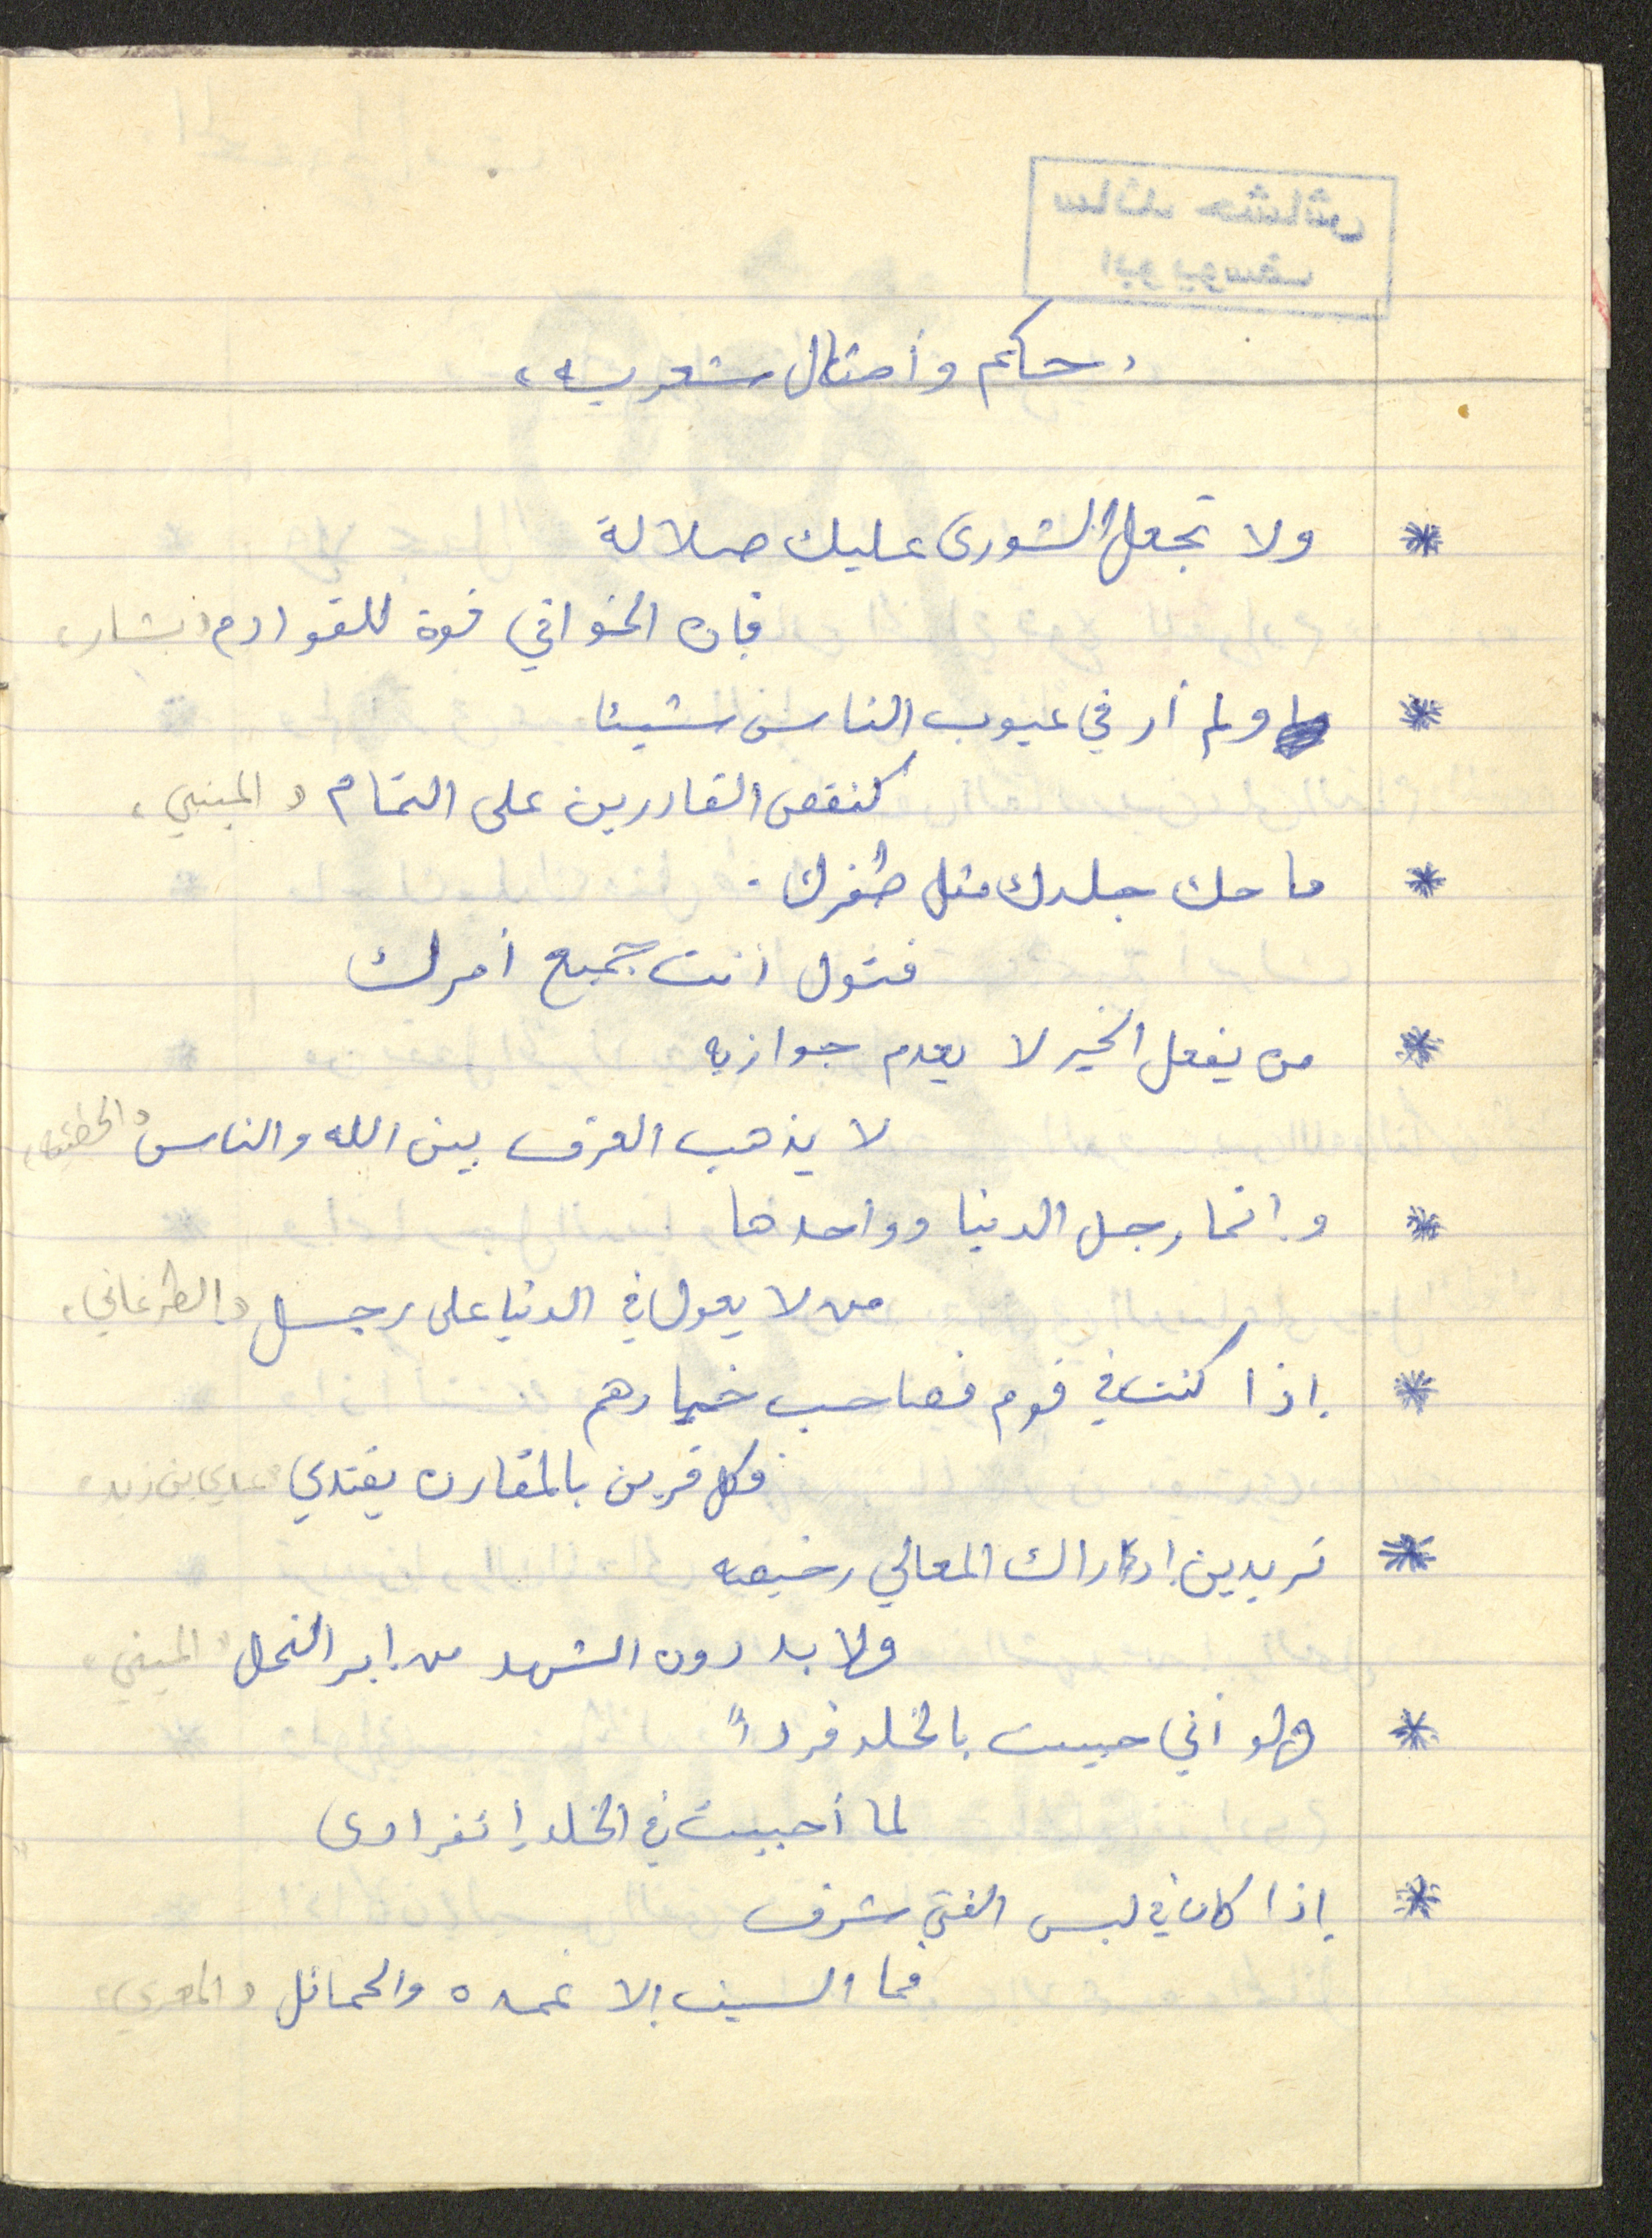 سائد حشاش
ابو يوسف
" حكم وأمثال شعرية "
* ولا تجعل الشورى عليك ضلالة
فإن الخوافي قوة للقوادم "بشار"
* ولم أر في عيوب الناس شيئا
كنقص القادرين على التمام "المتنبي"
* ما حك جلدك مثل ظفرك
فتول أنت جميع أمرك
* من يفعل الخير لا يعدم جوازيه
لا يذهب العرف بين الله والناس "الحطيئة"
* وإنما رجل الدنيا وواحدها
من لا يعول في الدنيا على رجل "الطغرائي"
* إذا كنت في قوم فصاحب خيارهم
فكل قرين بالمقارن يقتدي "عدي بن زيد"
* تريدين إدراك المعالي رخيصه
ولا بد دون الشهد من إبر النحل "المتنبي"
* ولو أني حبيت بالخلد فرداً
لما أحببت في الخلد إنفرادى
* إذا كان في لبس الفتى شرف
فما السيف إلا غمده والحمائل "المعري"